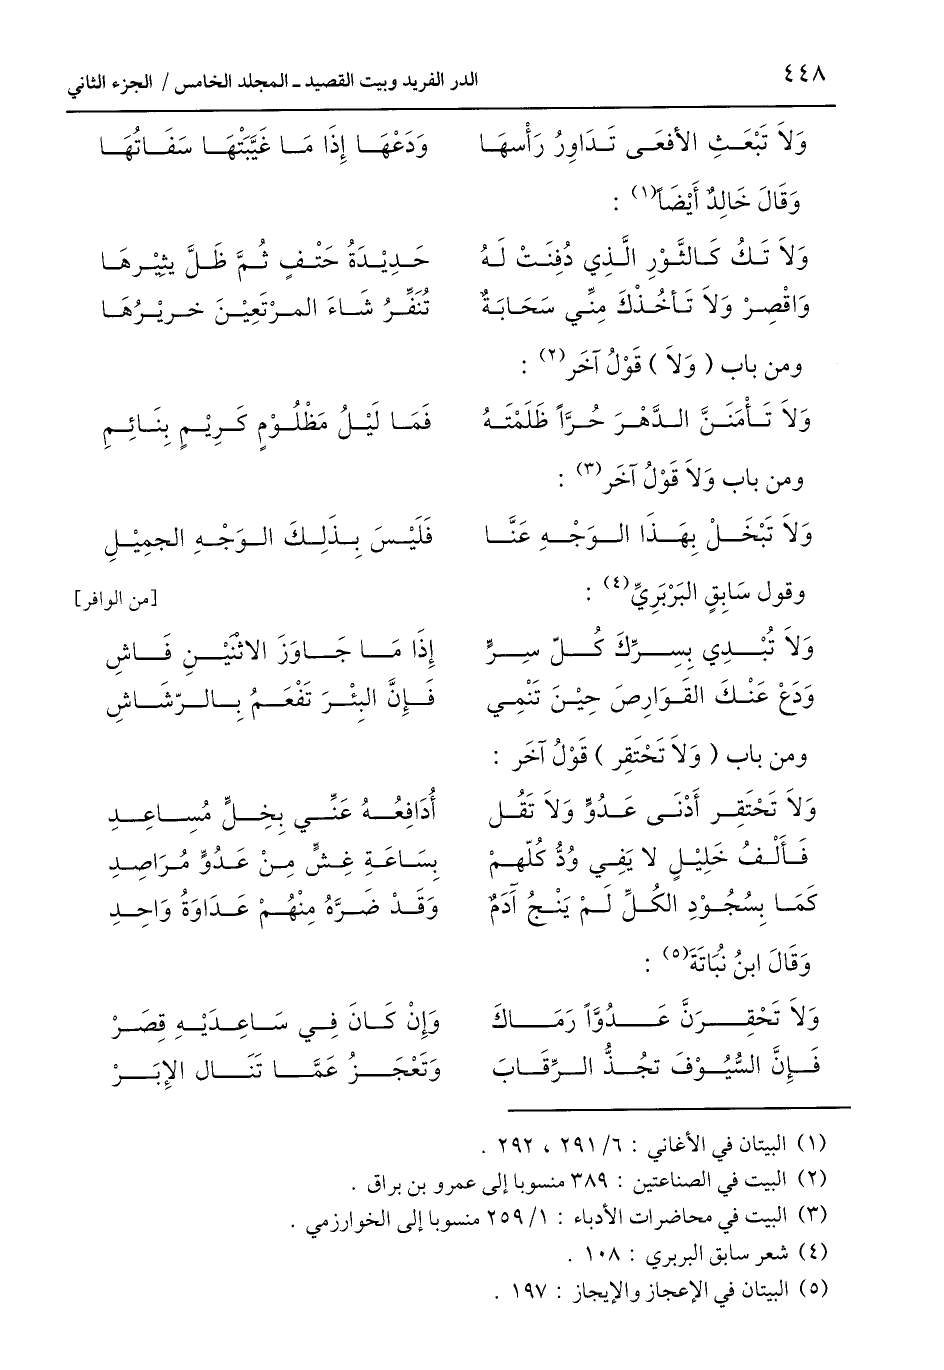 ٤٤٨ الدر الفريد وبيت القصيد ـ المجلد الخامس / الجزء الثاني
وَلاَ تَبْعَثِ الأَفعَى تَدَاورُ رَأْسهَا وَدَعْهَا إِذَا مَا غَيَّبَتْهَا سَفَاتُهَا
وَقَالَ خَالِدٌ أَيْضَاً(١) :
وَلاَ تَكُ كَالثَّوْرِ الَّذِي دُفِنَتْ لَهُ حَدِيْدَةُ حَتْفٍ ثُمَّ ظَلَّ يثِيْرهَا
وَاقْصِرْ وَلاَ تَأخُذْكَ مِنِّي سَحَابَةٌ تُنَفِّرُ شَاءَ المرْتَعِيْنَ خرِيْرُهَا
ومن باب ( وَلاَ ) قَوْلُ آخَر(٢) :
وَلاَ تَأْمَنَنَّ الدَّهْرَ حُرَّاً ظَلَمْتَهُ فَمَا لَيْلُ مَظْلُوْمٍ كَرِيْمٍ بِنَائِمِ
ومن باب وَلاَ قَوْلُ آخَر(٣) :
وَلاَ تَبْخَلْ بِهَذَا الوَجْهِ عَنَّا فَلَيْسَ بِذَلِكَ الوَجْهِ الجمِيْلِ
وقول سَابِقٍ البَرْبَرِيِّ(٤) : [من الوافر]
وَلاَ تُبْدِي بِسِرِّكَ كُلّ سِرٍّ إِذَا مَا جَاوَزَ الاثْنَيْنِ فَاشِ
وَدَعْ عَنْكَ القَوَارِصَ حِيْنَ تَنْمِي فَإِنَّ البِئْرَ تفْعَمُ بِالرّشَاشِ
ومن باب ( وَلاَ تَحْتَقِر ) قَوْلُ آخَر :
وَلاَ تَحْتَقِر أَدْنَى عَدُوٍّ وَلاَ تَقُل أُدَافِعُهُ عَنِّي بِخِلٍّ مُسَاعِدِ
فَأَلْفُ خَلِيْلٍ لا يَفِي وُدُّ كُلِّهِمْ بِسَاعَةِ غِشٍّ مِنْ عَدُوٍّ مُرَاصِدِ
كَمَا بِسُجُوْدِ الكُلِّ لَمْ يَنْجُ آدَمٌ وَقَدْ ضَرَّهُ مِنْهُمْ عَدَاوَةُ وَاحِدِ
وَقَالَ ابنُ نُبَاتَةَ(٥) :
وَلاَ تَحْقِرَنَّ عَدُوَّاً رَمَاكَ وَإِنْ كَانَ فِي سَاعِدَيْهِ قِصَرْ
فَإِنَّ السُّيُوْفَ تجُذُّ الرِّقَابَ وَتَعْجَزُ عَمَّا تَنَال الإبَرْ
(١) البيتان في الأغاني : ٦/ ٢٩١ ، ٢٩٢ .
(٢) البيت في الصناعتين : ٣٨٩ منسوبا إلى عمرو بن براق .
(٣) البيت في محاضرات الأدباء : ١/ ٢٥٩ منسوبا إلى الخوارزمي .
(٤) شعر سابق البربري : ١٠٨ .
(٥) البيتان في الإعجاز والإيجاز : ١٩٧ .